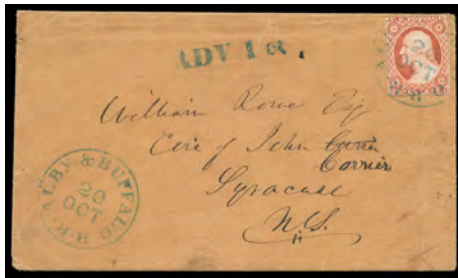 ADV 1 ct.
20
OCT
William Rowe Esq
Care of John
Carrier
Syracuse
N.Y.
ALBY & BUFFALO R.R.
20
OCT